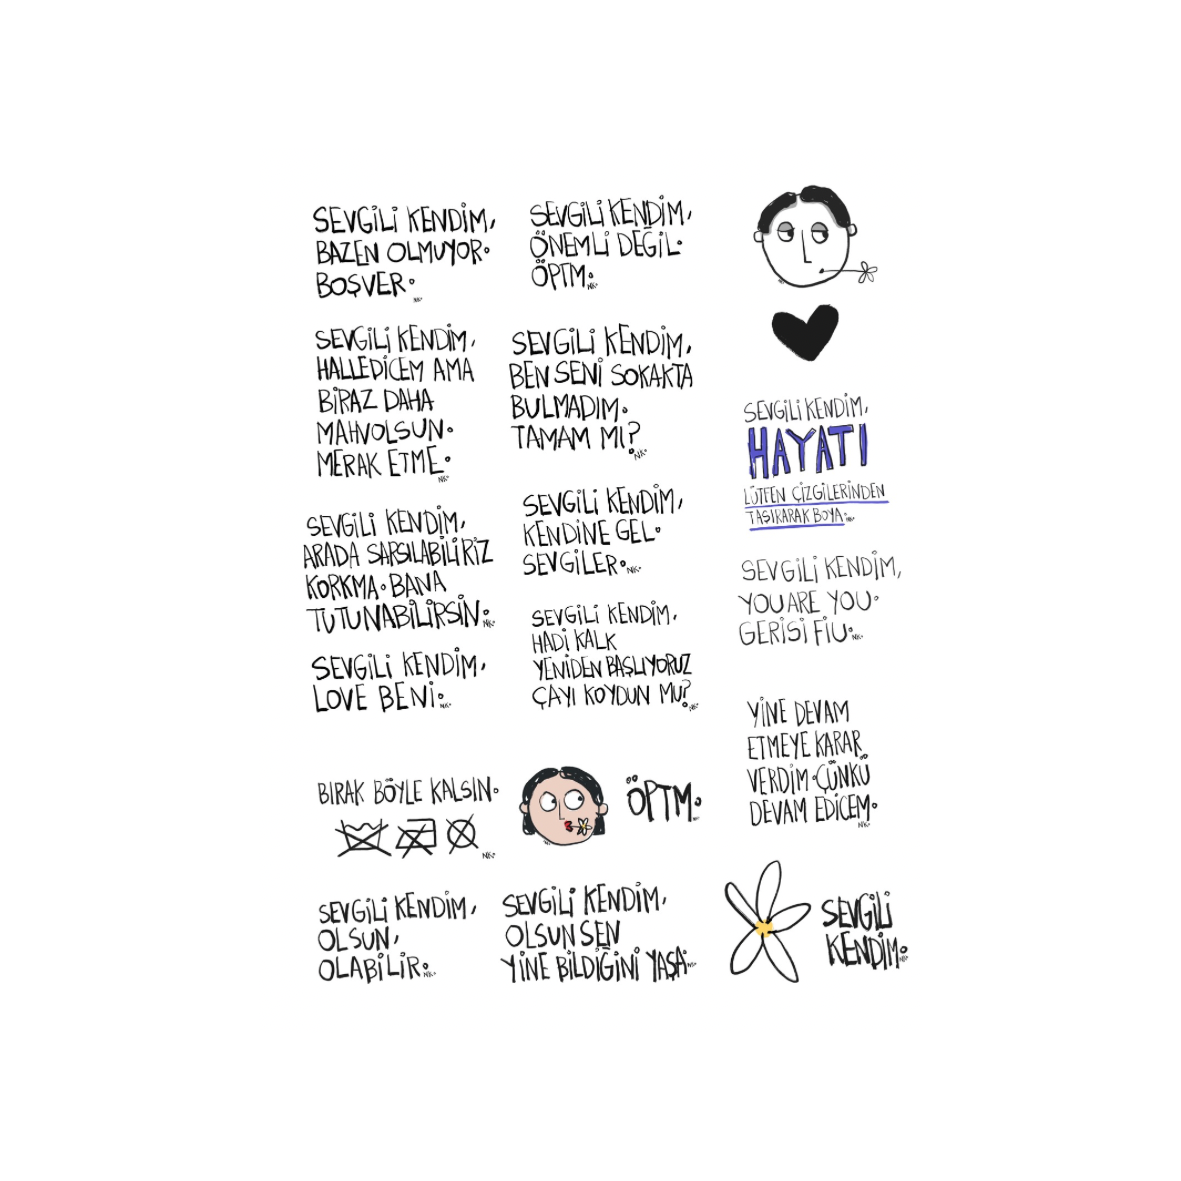 SEVGİLİ KENDİM,
BAZEN OLMUYOR.
BOŞVER.
NK.
SEVGİLİ KENDİM,
HALLEDİCEM AMA
BİRAZ DAHA
MAHVOLSUN.
MERAK ETME.
NK.
SEVGİLİ KENDİM,
ARADA SARSILABİLİRİZ
KORKMA. BANA
TUTUNABİLİRSİN.
NK.
SEVGİLİ KENDİM,
LOVE BENİ.
NK.
BIRAK BÖYLE KALSIN.
NK.
SEVGİLİ KENDİM,
OLSUN,
OLABİLİR.
NK.
SEVGİLİ KENDİM,
ÖNEMLİ DEĞİL.
ÖPTM.
NK.
SEVGİLİ KENDİM,
BEN SENİ SOKAKTA
BULMADIM.
TAMAM MI?
NK.
SEVGİLİ KENDİM,
KENDİNE GEL.
SEVGİLER.
NK.
SEVGİLİ KENDİM,
HADİ KALK
YENİDEN BAŞLIYORUZ
ÇAYI KOYDUN MU?
NK.
ÖPTM.
SEVGİLİ KENDİM,
OLSUN SEN
YİNE BİLDİĞİNİ YAŞA.
NK.
SEVGİLİ KENDİM,
HAYATI
LÜTFEN ÇİZGİLERİNDEN
TAŞIRARAK BOYA.
NK.
SEVGİLİ KENDİM,
YOU ARE YOU.
GERİSİ FİU.
NK.
YİNE DEVAM
ETMEYE KARAR
VERDİM. ÇÜNKÜ
DEVAM EDİCEM.
NK.
SEVGİLİ
KENDİM.
NK.